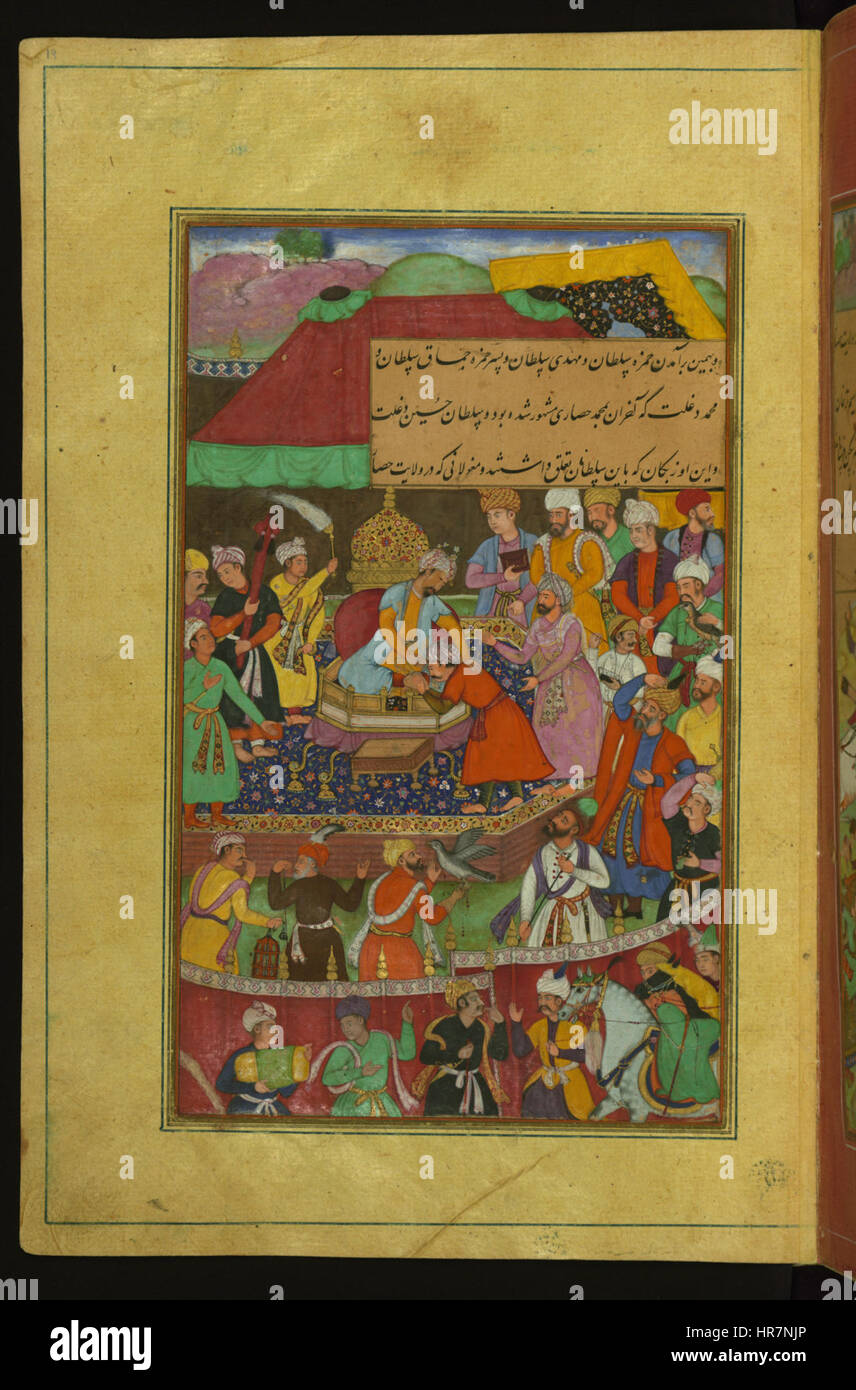 وبهمین برآمدن حمزه سلطان و مهدی سلطان و پسر حمزه جماق سلطان و
محمد دغلت که آخران بمحمد حصاری مشهور شده بود و سلطان حسین دغلت
و این اوزبکان که باین سلطانان تعلق داشتند و مغولانی که در ولایت حصا
a
alamy stock photo
HR7NJP
www.alamy.com